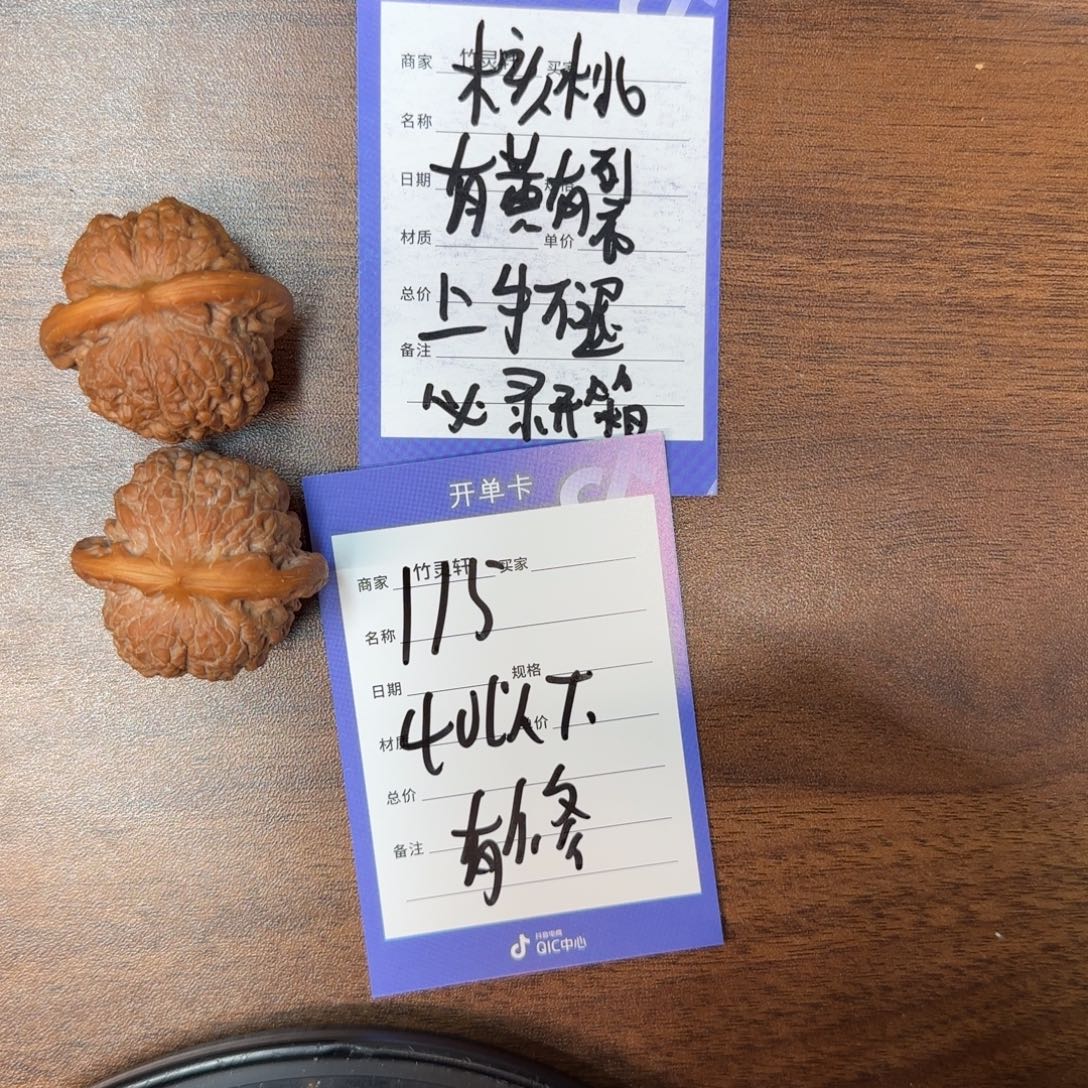 商家 竹灵轩 买家
核桃
名称
日期
有黄有裂
材质 单价
总价
上手不退
备注
必录开箱
开单卡
商家 竹灵轩 买家
175
名称
日期 规格
材质 单价
40以下
总价
备注
有修
抖音电商
QIC中心